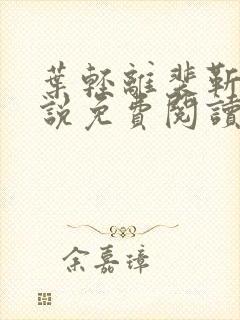 葉輕離裴靳
說免費閱讀
余嘉璋